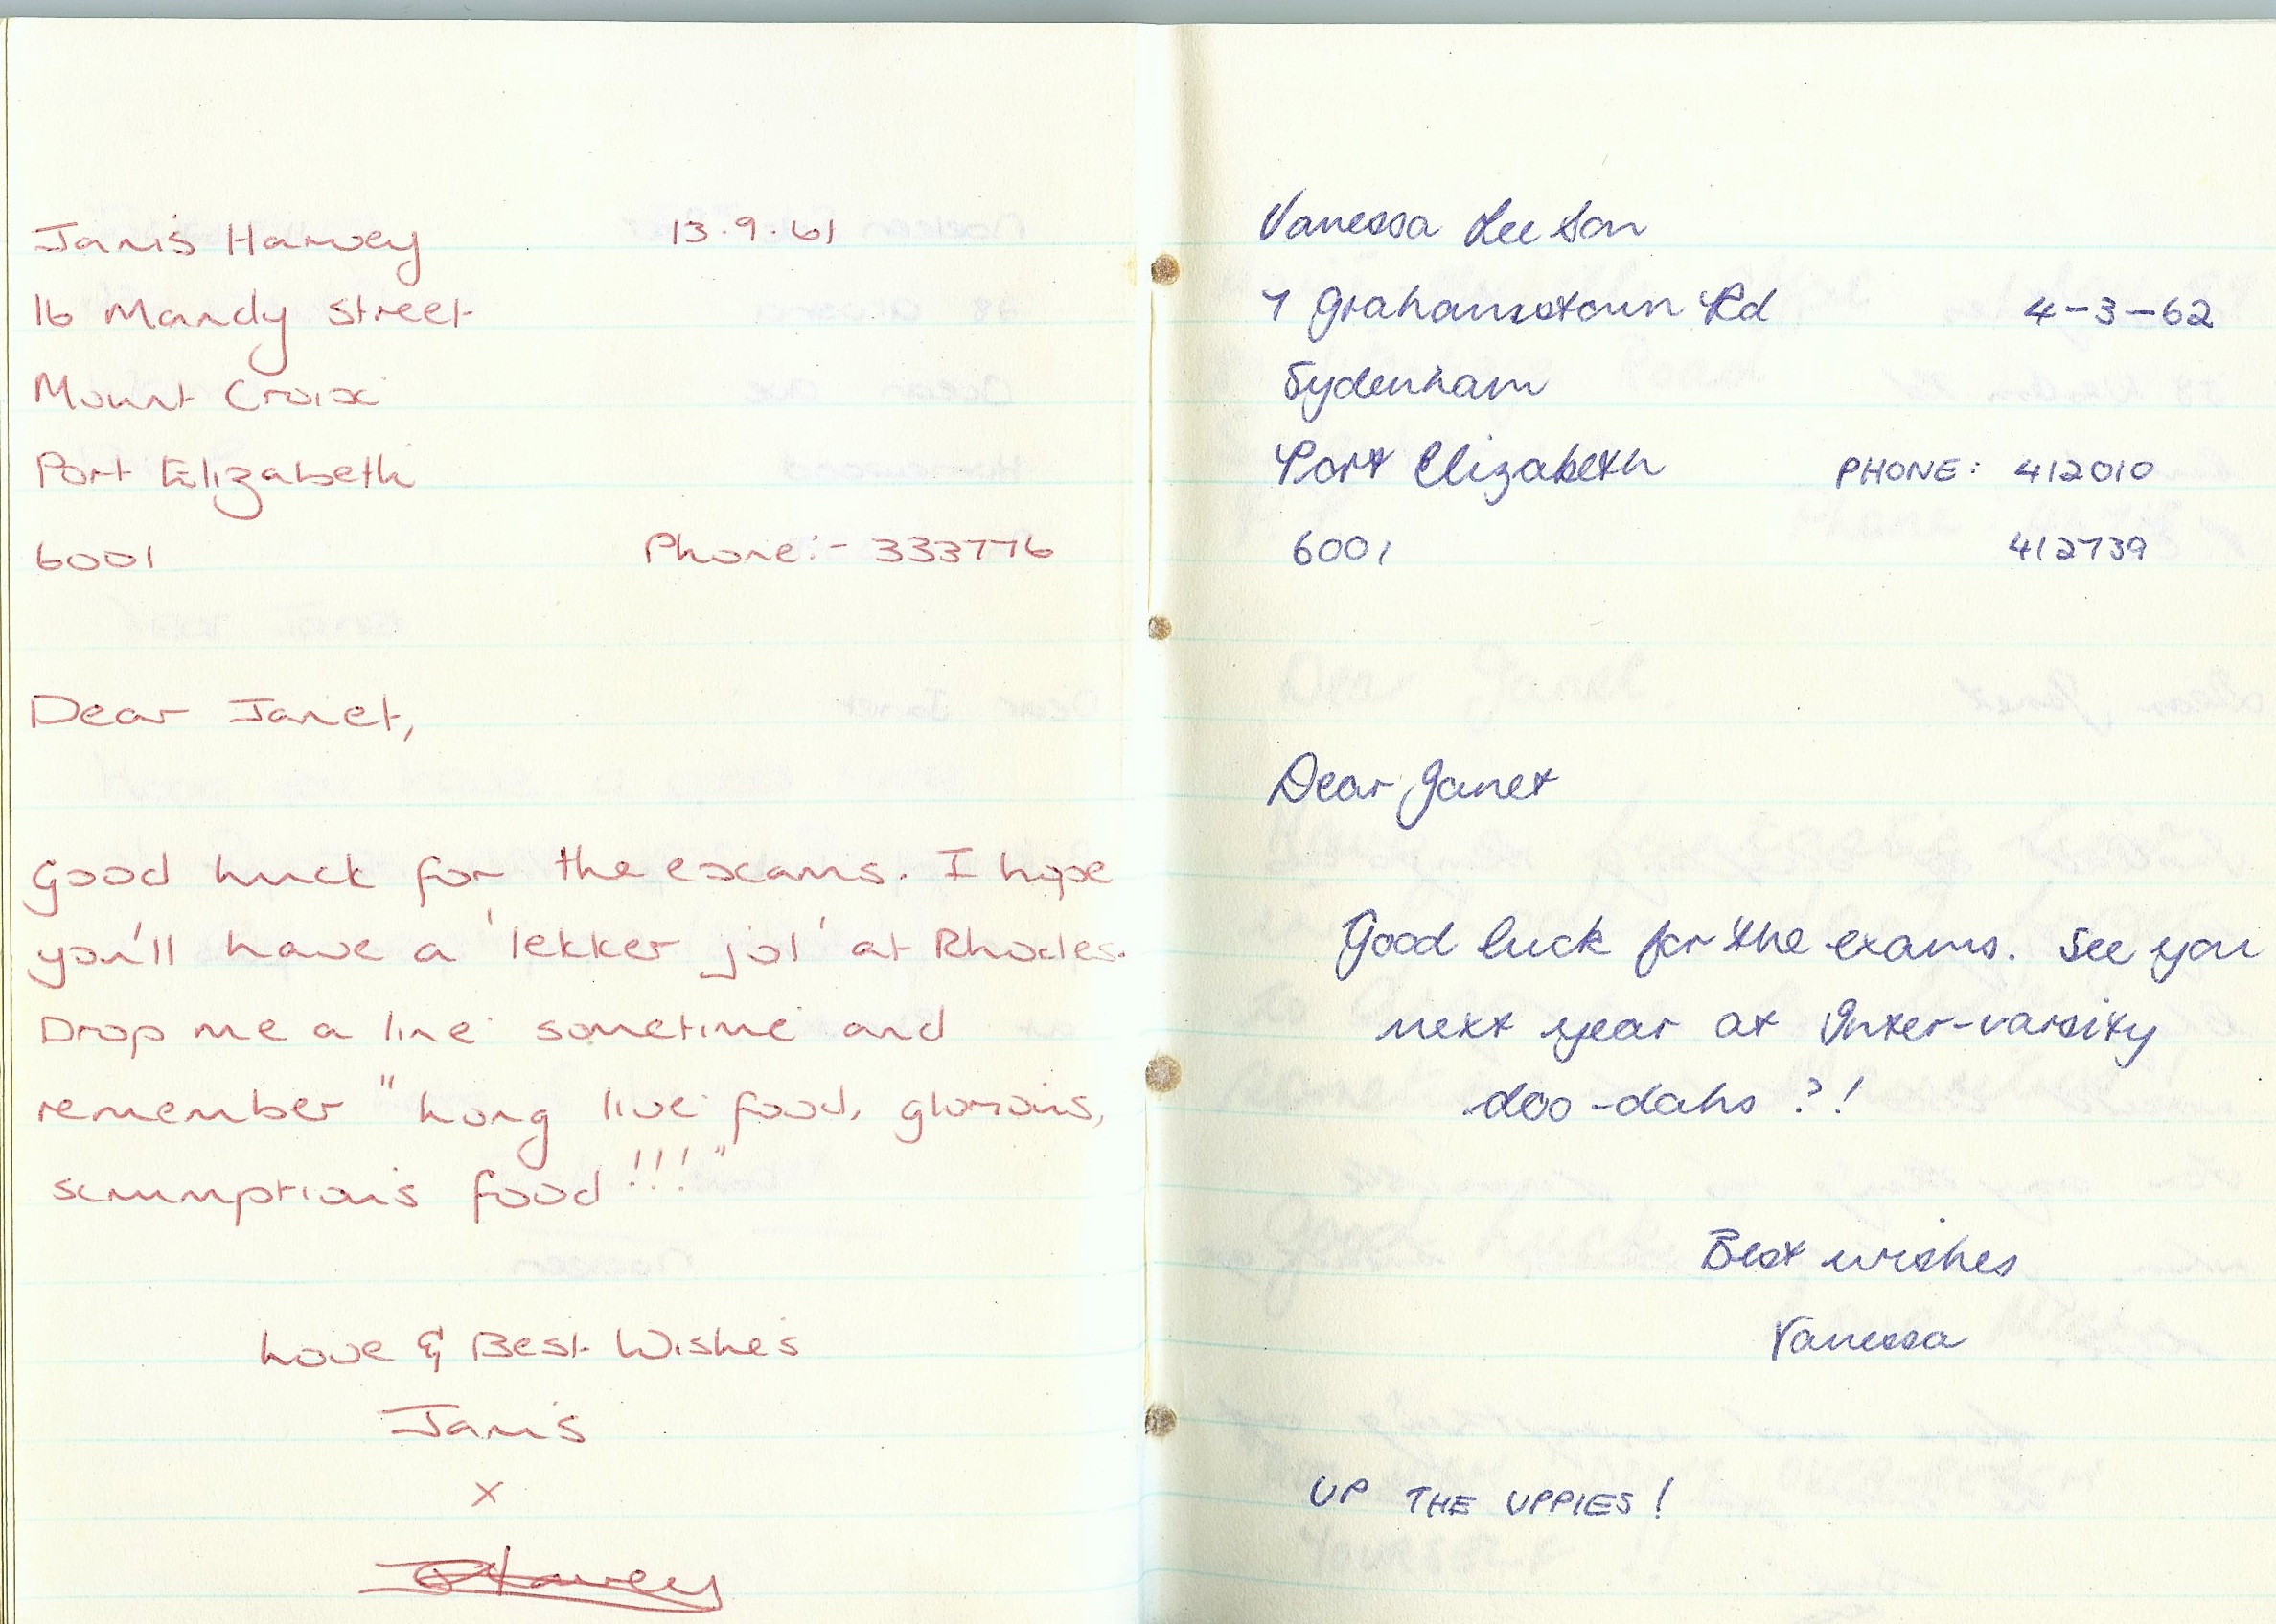 Janis Harvey 13.9.61
16 Mandy Street
Mount Croix
Port Elizabeth
6001 Phone:- 333776
Dear Janet,
Good Luck for the exams. I hope
you'll have a 'lekker jol' at Rhodes.
Drop me a line sometime and
remember "Long live food, glorious,
scrumptious food!!!"
Love & Best Wishes
Janis
x
JHarvey
Vanessa Lee Son
7 Grahamstown Rd 4-3-62
Sydenham
Port Elizabeth PHONE: 412010
6001 412739
Dear Janet
Good luck for the exams. See you
next year at Inter-varsity
doo-dahs ?!
Best wishes
Vanessa
UP THE UPPIES!